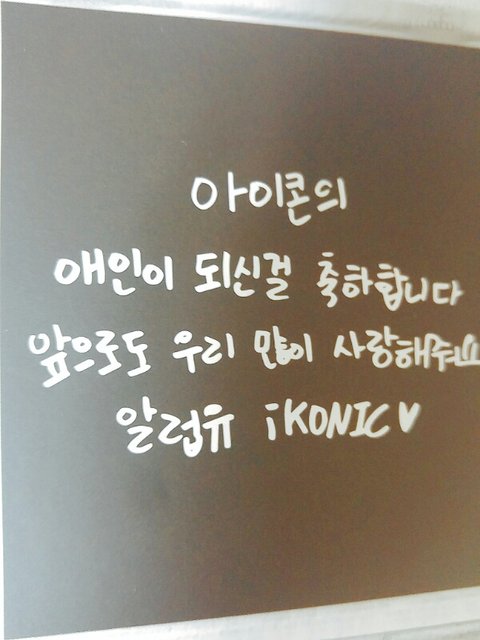 아이콘의
애인이 되신걸 축하합니다
앞으로도 우리 많이 사랑해주세요
알럽유 iKONIC♥